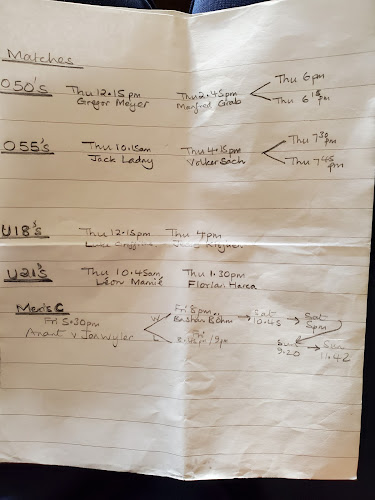 Matches
O50's Thu 12.15pm Thu 2.45pm Thu 6pm
Gregor Meyer Manfred Grab Thu 6 15 pm
O55's Thu 10.15am Thu 4.15pm Thu 7 30 pm
Jack Ladny Volker Sach Thu 7 45 pm
U18's Thu 12.15pm Thu 4pm
U21's Thu 10.45am Thu 1.30pm
Leon Manié Florian
Men's C Fri 8pm Sat Sat
Fri 5.30pm W Bastian Bohm 10.45 5pm
Anant v Jon Wyler L Fri Sun
8.45pm/9pm 9.20 11.42